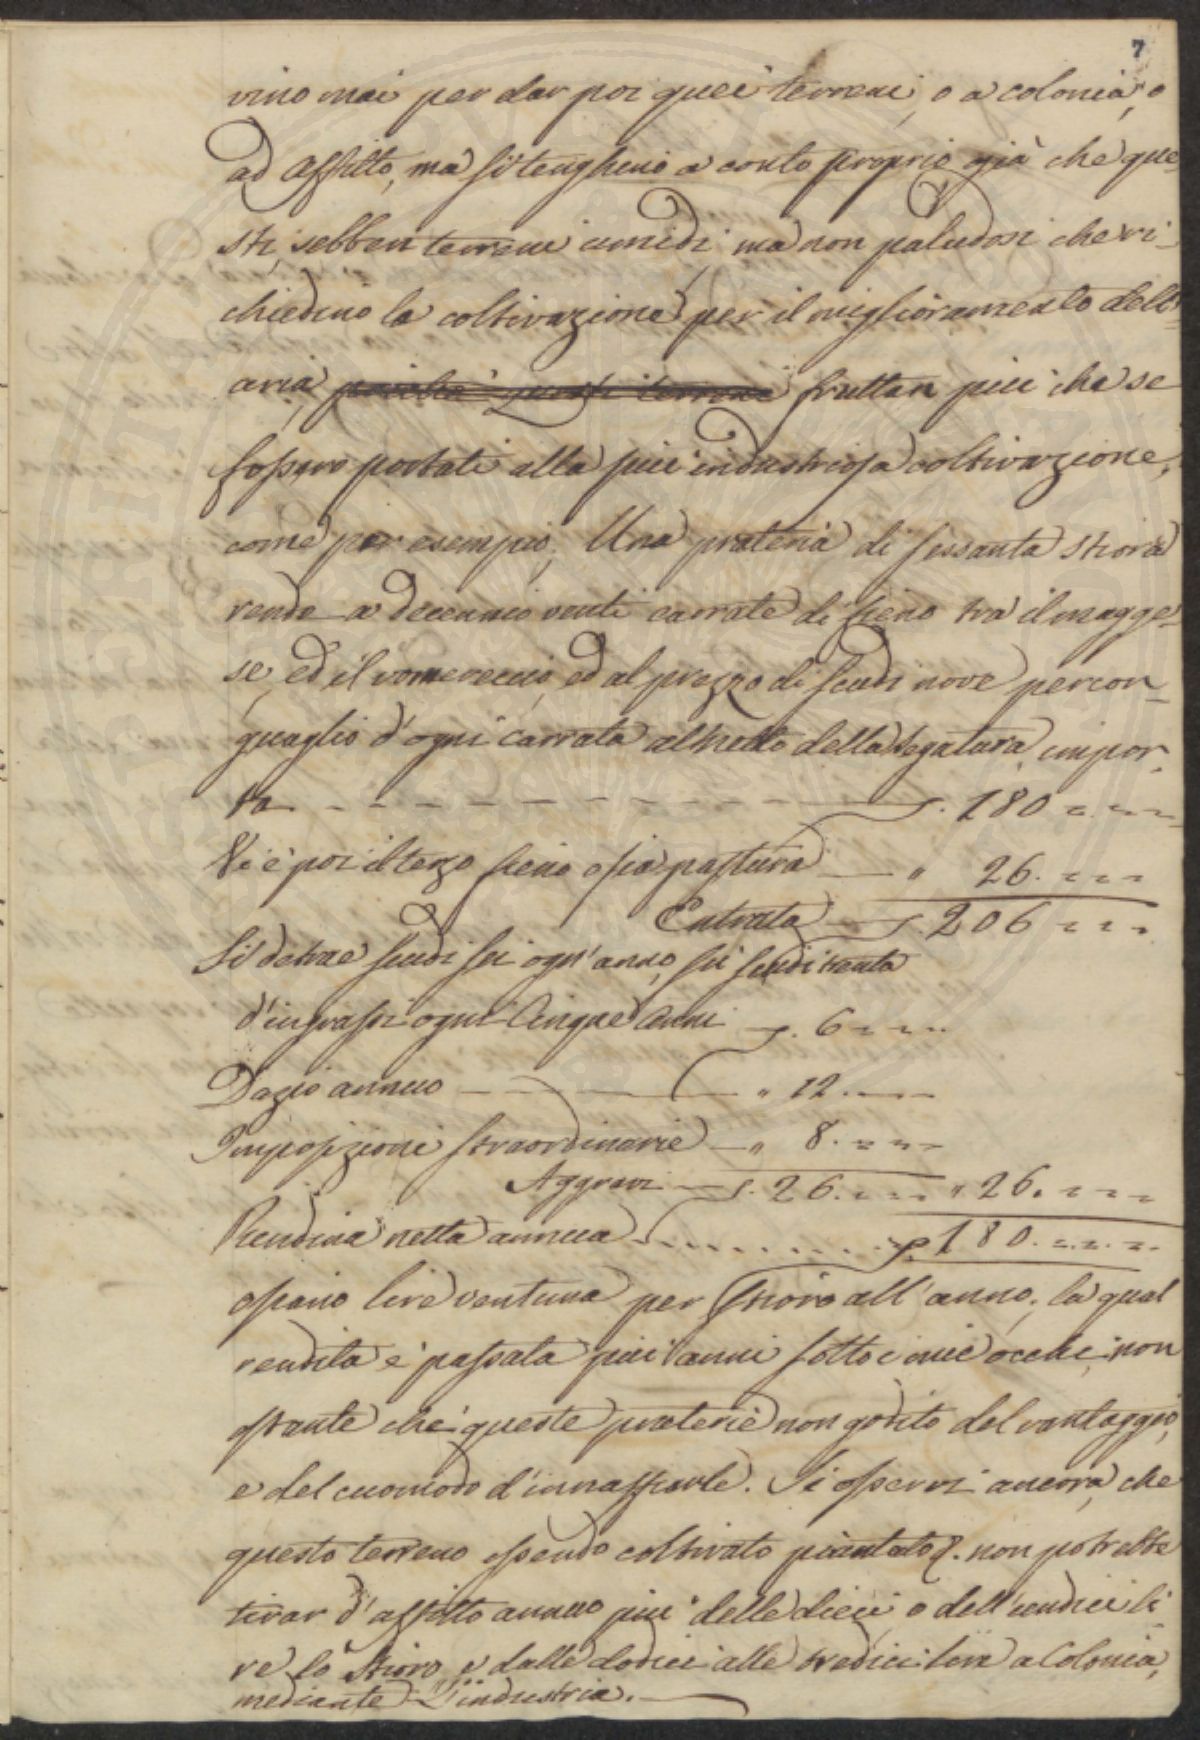 7
vino mai per dar poi quei terreni, o a colonia, o
ad affitto, ma si tenghino a conto proprio già che que-
sti, sebben terreni umidi ma non paludosi che ri-
chiedino la coltivazione per il miglioramento dell'
aria, poichè questi terreni fruttan più che se
fossero portati alla più industriosa coltivazione,
come per esempio, Una prateria di sessanta stiora
rende a decennio venti carrate di fieno tra il magge-
se, ed il vomereccio, ed al prezzo di scudi nove percon-
guaglio d'ogni carrata al netto della segatura, impor-
ta - - - - - - - - s. 180 = = =
Vi è poi il terzo fieno o sia pastura — " 26. = = =
Entrata — s. 206 = = =
Si detrae scudi sei ogn'anno, su scudi trenta
d'ingrassi ogni Cinque anni — s. 6 = = =
Dazio annuo — — — " 12. = = =
Imposizioni straordinarie — " 8. = = =
Aggravi — s. 26. = = = " 26. = = =
Rendita netta annua . . . . . . . s. 180. = = =
ossiano lire ventuna per stioro all'anno; la qual
rendita è passata più anni sotto i miei occhi, non
ostante che queste praterie non godito del vantaggio,
e del cuomodo d'innaffiarle. Si osservi ancora, che
questo terreno essendo coltivato piantato &. non potrebbe
tirar d'affitto annuo più delle dieci, o dell'undici li
re lo stioro, e dalle dodici alle tredici lire a Colonia,
mediante l'industria. —